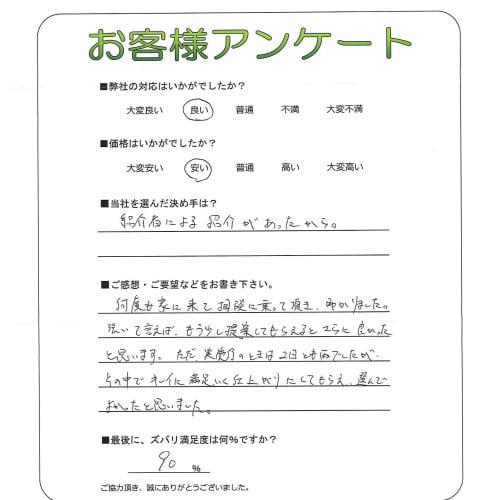 お客様アンケート
■弊社の対応はいかがでしたか？
大変良い 良い 普通 不満 大変不満
■価格はいかがでしたか？
大変安い 安い 普通 高い 大変高い
■当社を選んだ決め手は？
紹介者による紹介があったから。
■ご感想・ご要望などをお書き下さい。
何度も家に来て相談に乗って頂き、助かりました。
強いて言えば、もう少し提案してもらえるとさらに良かった
と思います。ただ、実施のときは2日とも雨でしたが、
その中でキレイに満足いく仕上がりにしてもらえ、選んで
よかったと思いました。
■最後に、ズバリ満足度は何％ですか？
90 ％
ご協力頂き、誠にありがとうございました。